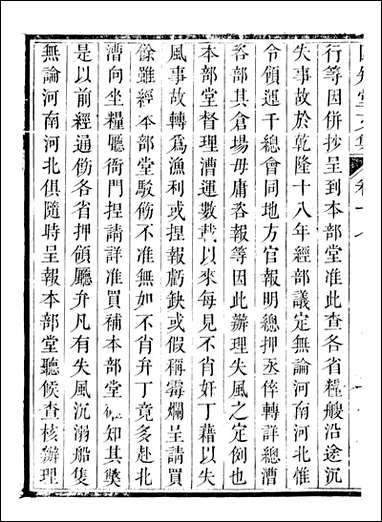 四知堂文集 卷十八
行等因併抄呈到本部堂准此查各省糧艘沿途沉
失事故於乾隆十八年經部議定無論河南河北惟
令領運千總會同地方官報明總押丞倅轉詳總漕
咨部其倉場毋庸咨報等因此辦理失風之定例也
本部堂督理漕運數載以來每見不肖奸丁藉以失
風事故轉為漁利或捏報虧缺或假稱霉爛呈請買
餘雖經本部堂駁飭不准無如不肖弁丁竟多赴北
漕向坐糧廳衙門捏請詳准買補本部堂知其獘
是以前經通飭各省押領廳弁凡有失風沉溺船隻
無論河南河北俱隨時呈報本部堂聽候查核辦理